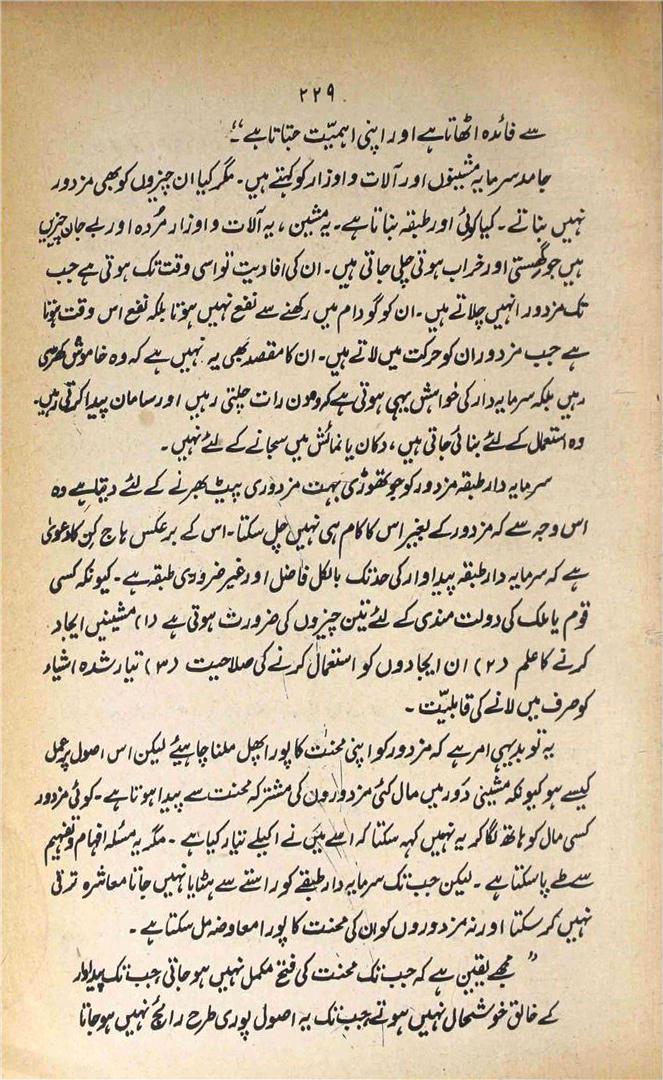 ۲۲۹
سے فائدہ اٹھاتا ہے اور اپنی اہمیّت جتاتا ہے"۔
جامد سرمایہ مشینوں اور آلات و اوزار کو کہتے ہیں۔ مگر کیا ان چیزوں کو بھی مزدور
نہیں بناتے۔ کیا کوئی اور طبقہ بناتا ہے۔ یہ مشین، یہ آلات و اوزار مُردہ اور بے جان چیزیں
ہیں جو گھستی اور خراب ہوتی چلی جاتی ہیں۔ ان کی افادیت تو اسی وقت تک ہوتی ہے جب
تک مزدور انہیں چلاتے ہیں۔ ان کو گودام میں رکھنے سے نفع نہیں ہوتا بلکہ نفع اس وقت ہوتا
ہے جب مزدور ان کو حرکت میں لاتے ہیں۔ ان کا مقصد بھی یہ نہیں ہے کہ وہ خاموش کھڑی
رہیں بلکہ سرمایہ دار کی خواہش یہی ہوتی ہے کہ وہ دن رات چلتی رہیں اور سامان پیدا کرتی رہیں۔
وہ استعمال کے لئے بنائی جاتی ہیں، دکان یا نمائش میں سجانے کے لئے نہیں۔
سرمایہ دار طبقہ مزدور کو جو تھوڑی بہت مزدوری پیٹ بھرنے کے لئے دیتا ہے وہ
اس وجہ سے کہ مزدور کے بغیر اس کا کام ہی نہیں چل سکتا۔ اس کے برعکس ہاج کن کا دعویٰ
ہے کہ سرمایہ دار طبقہ پیداوار کی حد تک بالکل فاضل اور غیر ضروری طبقہ ہے۔ کیونکہ کسی
قوم یا ملک کی دولت مندی کے لئے تین چیزوں کی ضرورت ہوتی ہے (۱) مشینیں ایجاد
کرنے کا علم (۲) ان ایجادوں کو استعمال کرنے کی صلاحیت (۳) تیار شدہ اشیاء
کو صرف میں لانے کی قابلیّت۔
یہ تو بدیہی امر ہے کہ مزدور کو اپنی محنت کا پورا پھل ملنا چاہیئے لیکن اس اصول پر عمل
کیسے ہو کیونکہ مشینی دَور میں مال کئی مزدوروں کی مشترکہ محنت سے پیدا ہوتا ہے۔ کوئی مزدور
کسی مال کو ہاتھ لگا کر یہ نہیں کہہ سکتا کہ اسے میں نے اکیلے تیار کیا ہے۔ مگر یہ مسئلہ افہام و تفہیم
سے طے پا سکتا ہے۔ لیکن جب تک سرمایہ دار طبقے کو راستے سے ہٹایا نہیں جاتا معاشرہ ترقی
نہیں کر سکتا اور نہ مزدوروں کو ان کی محنت کا پورا معاوضہ مل سکتا ہے۔
"مجھے یقین ہے کہ جب تک محنت کی فتح مکمل نہیں ہو جاتی، جب تک پیداوار
کے خالق خوشحال نہیں ہوتے، جب تک یہ اصول پوری طرح رائج نہیں ہو جاتا